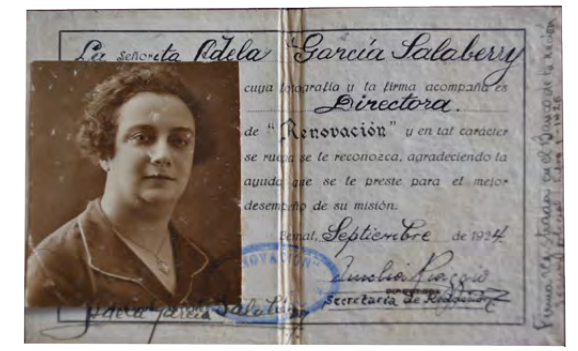 La Señorita Adela García Salaberry
cuya fotografía y la firma acompaña es
Directora.
de "Renovación" y en tal carácter
se ruega se le reconozca, agradeciendo la
ayuda que se le preste para el mejor
desempeño de su misión.
Bernal, Septiembre de 1924
Secretaria de
Adela García Salaberry
RENOVACIÓN